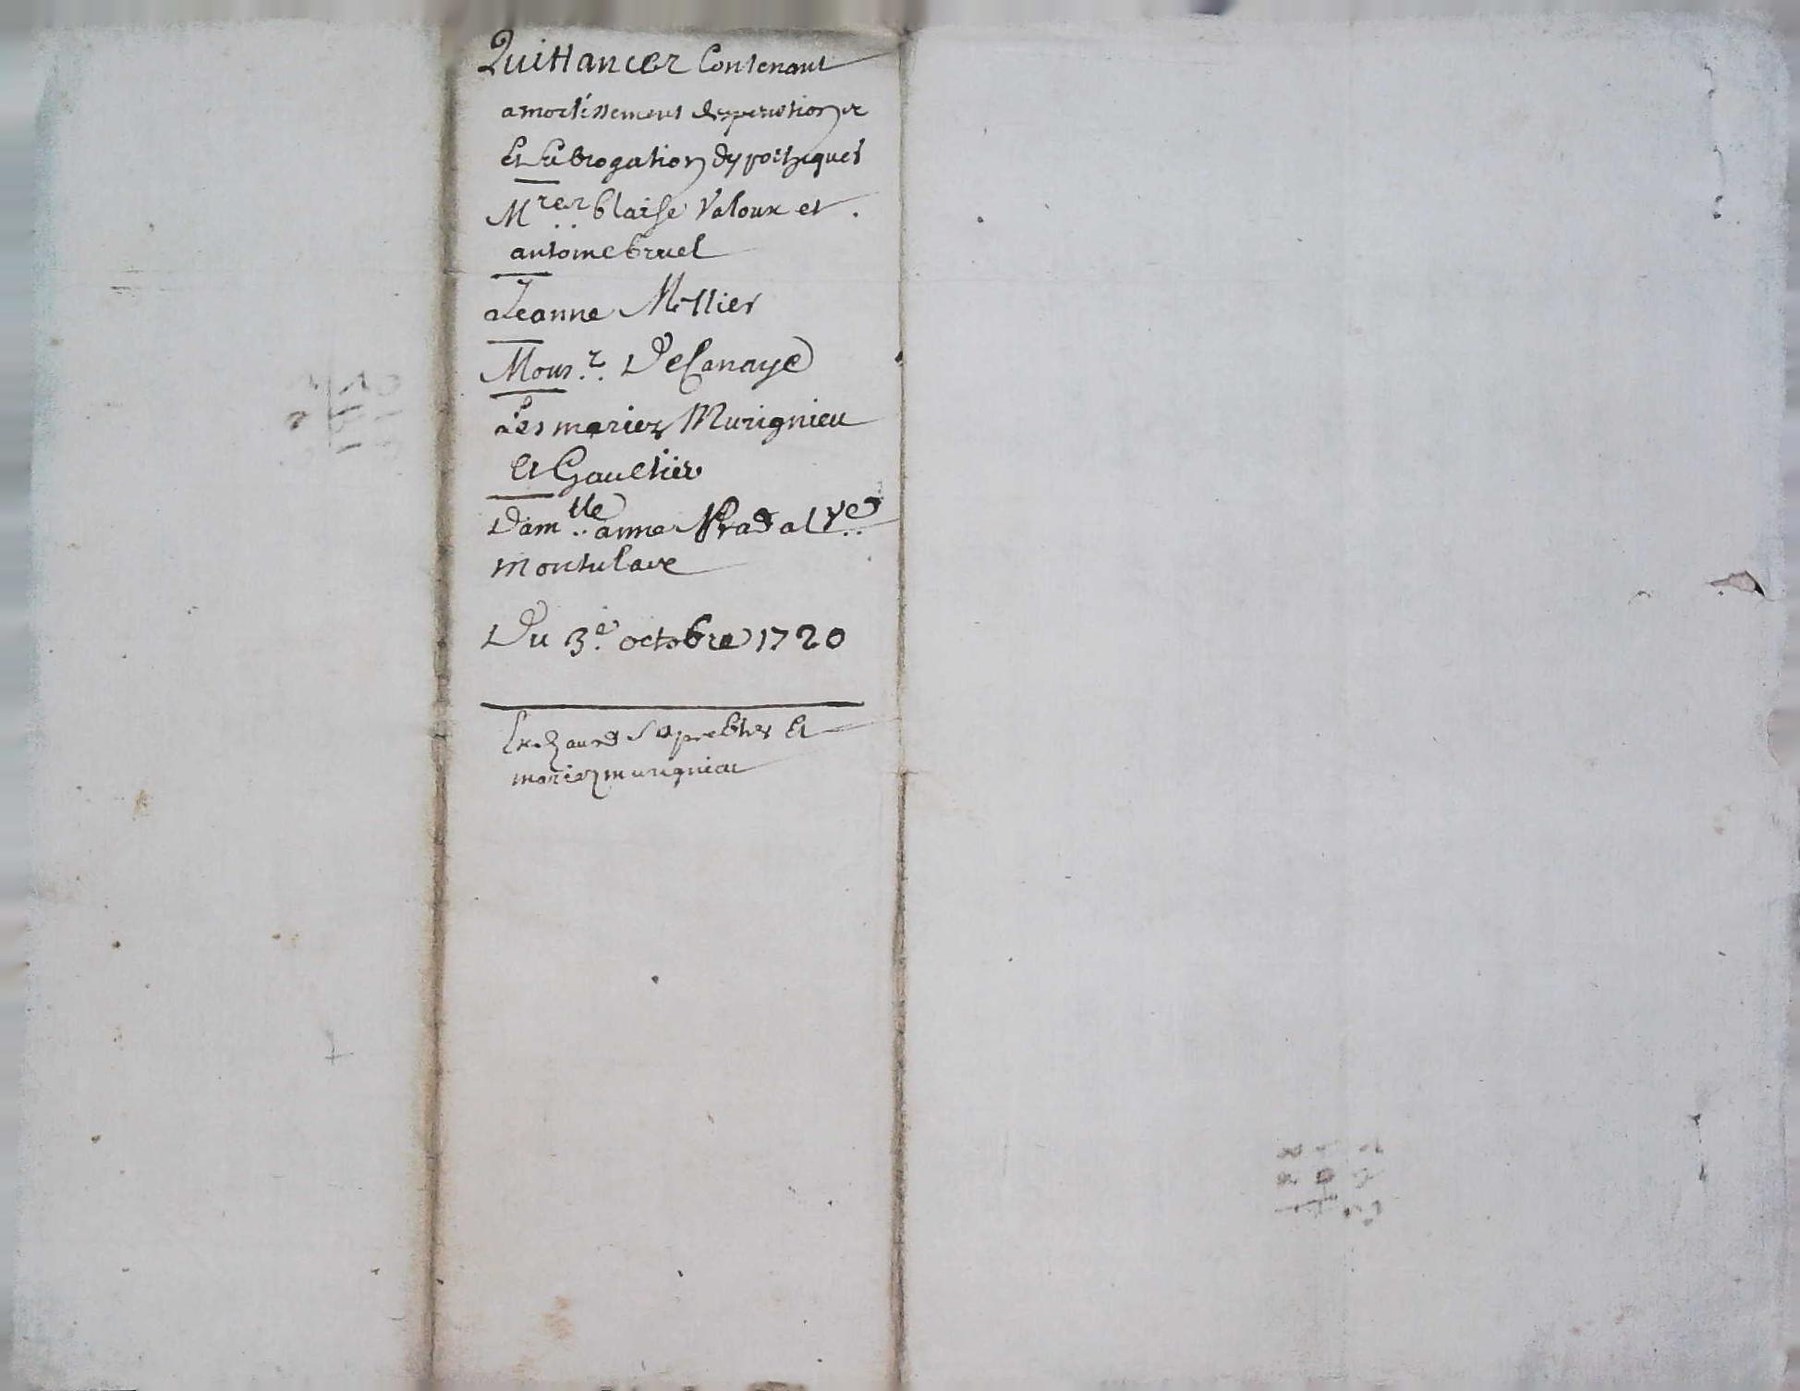 Quittances Contenant
amortissement de pensions
Et Subrogation dypotheques
Mres blaise Valoux et
antoine bruel
a Jeanne Mellier
Monsr. DeLanaye
Les mariez Murignieu
Et Gaultier
Damlle anne Pradal Ve
montulave
Du 3e octobre 1720
mariez murignieu